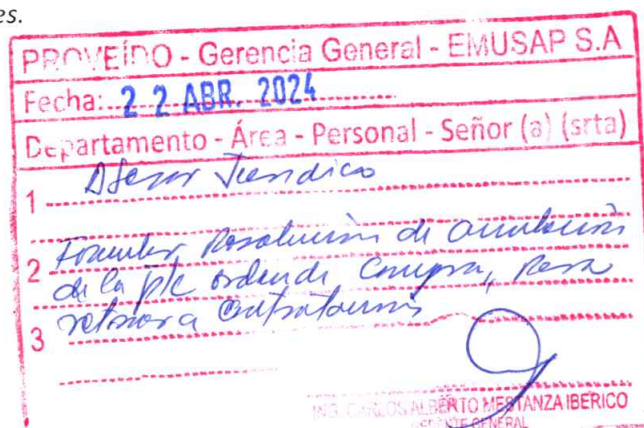 es.
PROVEÍDO - Gerencia General - EMUSAP S.A
Fecha: 22 ABR. 2024
Departamento - Área - Personal - Señor (a) (srta)
1 Asesor Juridico
Formular Resolución de anulación
2 de la p/c orden de Compra, para
3
ING. CARLOS ALBERTO MESTANZA IBERICO
GERENTE GENERAL